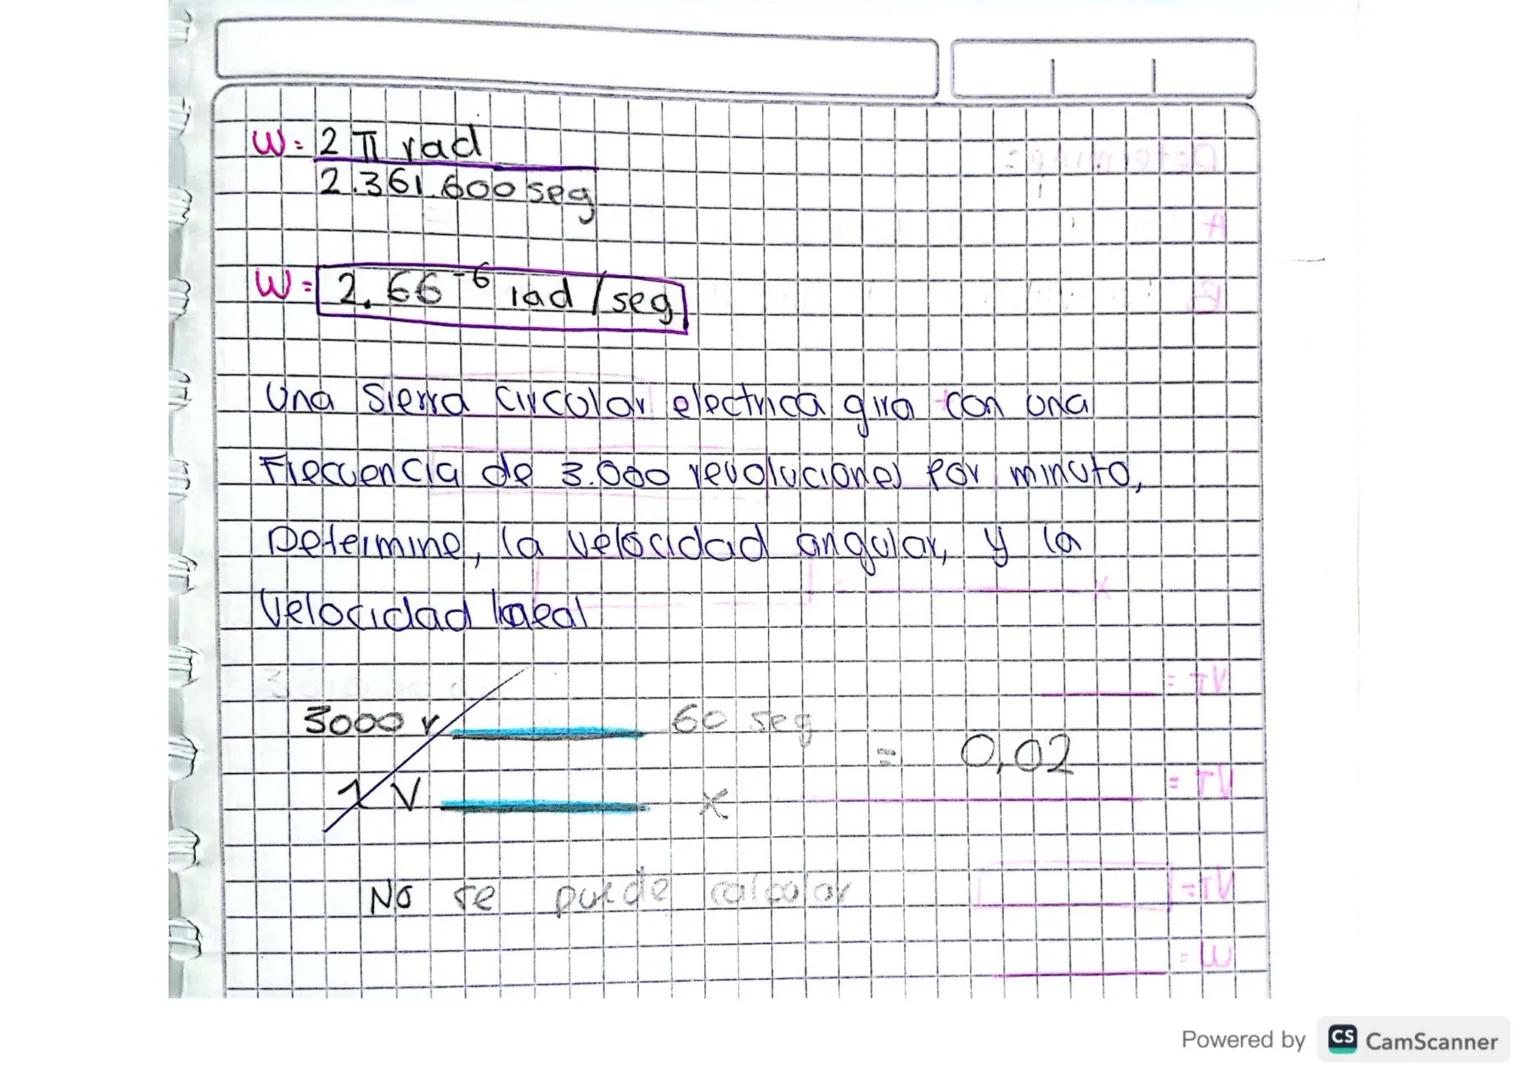 W= 2 π rad
2.361.600 seg
W= 2.66⁻⁶ rad / seg
Una Sierra circular electrica gira con una
Frecuencia de 3.000 revoluciones por minuto,
Determine, la velocidad angular, y la
Velocidad lineal
3000 r 60 seg
= 0,02
1 V x
No se puede calcular
Powered by CS CamScanner